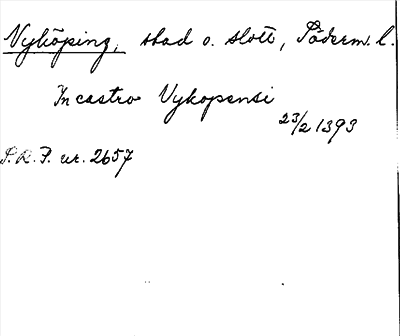 Nyköping, stad o. slott, Söderm. l.
In castro Nykopensi
23/2 1393
S.R.P. nr. 2657